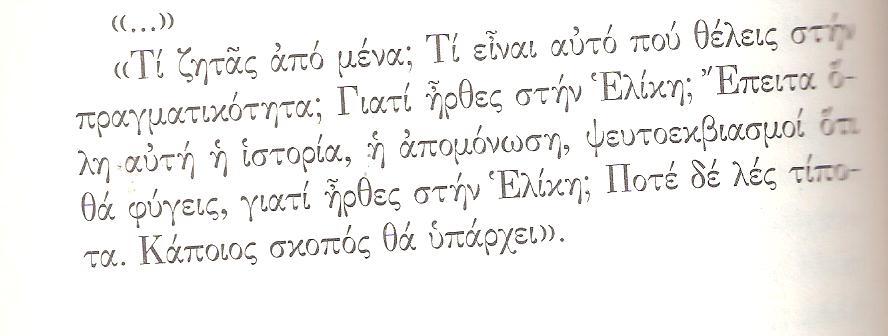 «...»
«Τί ζητᾶς ἀπό μένα; Τί εἶναι αὐτό πού θέλεις στήν
πραγματικότητα; Γιατί ἦρθες στήν Ἑλίκη; Ἔπειτα ὅ-
λη αὐτή ἡ ἱστορία, ἡ ἀπομόνωση, ψευτοεκβιασμοί ὅτι
θά φύγεις, γιατί ἦρθες στήν Ἑλίκη; Ποτέ δέ λές τίπο-
τα. Κάποιος σκοπός θά ὑπάρχει».